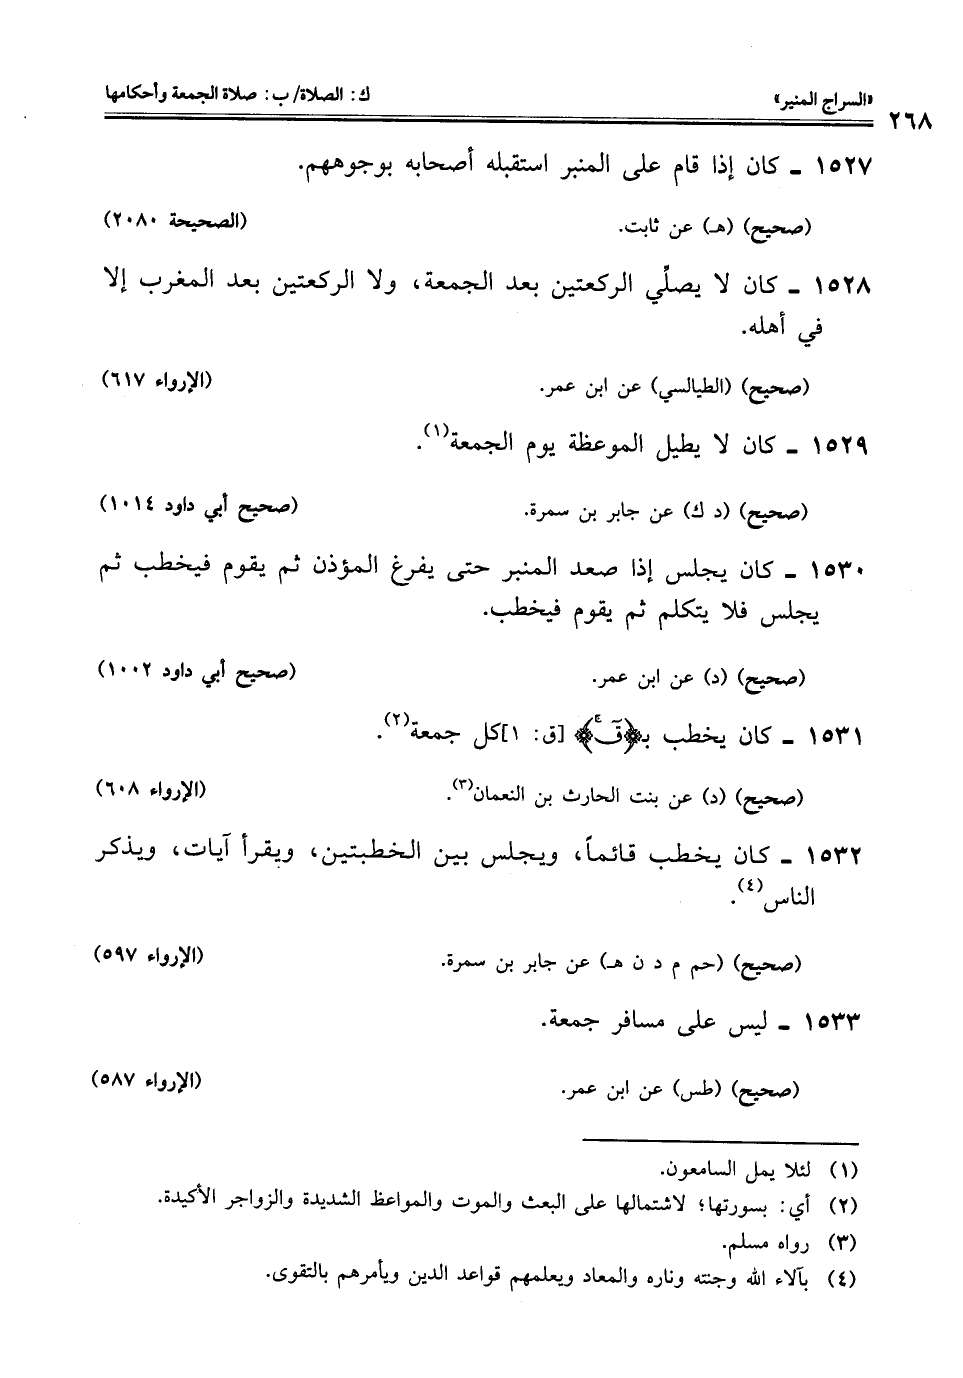 ٢٦٨
«السراج المنير»
ك: الصلاة/ ب: صلاة الجمعة وأحكامها
١٥٢٧ ـ كان إذا قام على المنبر استقبله أصحابه بوجوههم.
(صحيح) (هـ) عن ثابت. (الصحيحة ٢٠٨٠)
١٥٢٨ ـ كان لا يصلِّي الركعتين بعد الجمعة، ولا الركعتين بعد المغرب إلا
في أهله.
(صحيح) (الطيالسي) عن ابن عمر. (الإرواء ٦١٧)
١٥٢٩ ـ كان لا يطيل الموعظة يوم الجمعة(١).
(صحيح) (د ك) عن جابر بن سمرة. (صحيح أبي داود ١٠١٤)
١٥٣٠ ـ كان يجلس إذا صعد المنبر حتى يفرغ المؤذن ثم يقوم فيخطب ثم
يجلس فلا يتكلم ثم يقوم فيخطب.
(صحيح) (د) عن ابن عمر. (صحيح أبي داود ١٠٠٢)
١٥٣١ ـ كان يخطب بـ﴿قٓۚ﴾ [ق: ١]كل جمعة(٢).
(صحيح) (د) عن بنت الحارث بن النعمان(٣). (الإرواء ٦٠٨)
١٥٣٢ ـ كان يخطب قائماً، ويجلس بين الخطبتين، ويقرأ آيات، ويذكر
الناس(٤).
(صحيح) (حم م د ن هـ) عن جابر بن سمرة. (الإرواء ٥٩٧)
١٥٣٣ ـ ليس على مسافر جمعة.
(صحيح) (طس) عن ابن عمر. (الإرواء ٥٨٧)
(١) لئلا يمل السامعون.
(٢) أي: بسورتها؛ لاشتمالها على البعث والموت والمواعظ الشديدة والزواجر الأكيدة.
(٣) رواه مسلم.
(٤) بآلاء الله وجنته وناره والمعاد ويعلمهم قواعد الدين ويأمرهم بالتقوى.